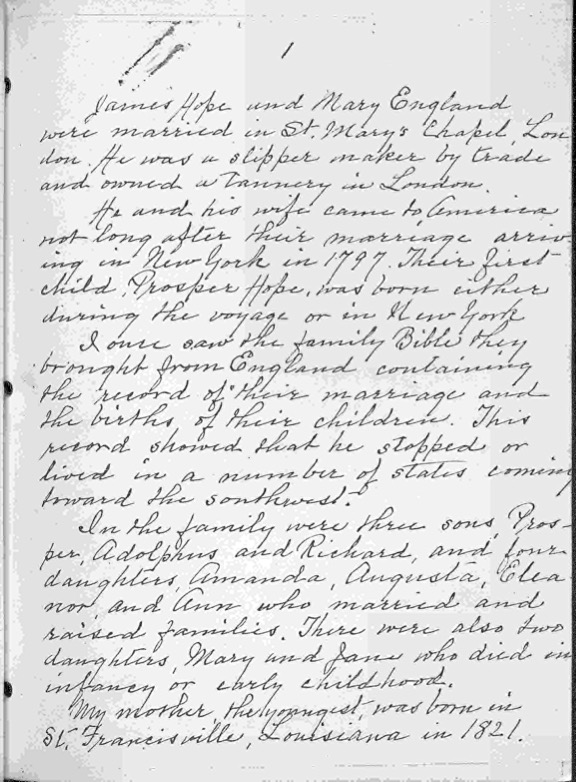 1
James Hope and Mary England
were married in St. Mary's Chapel, Lon
don. He was a slipper maker by trade
and owned a Tannery in London.
He and his wife came to America
not long after their marriage arriv-
ing in New York in 1797. Their first
child, Prosper Hope, was born either
during the voyage or in New York
I once saw the family Bible they
brought from England containing
the record of their marriage and
the births, of their children. This
record showed that he stopped or
lived in a number of states coming
toward the southwest.
In the family were three sons, Pros-
per, Adolphus and Richard, and four
daughters, Amanda, Augusta, Elea
nor, and Ann who married and
raised families. There were also two
daughters, Mary and Jane who died in
infancy or early childhood.
My mother, the youngest, was born in
St. Francisville, Louisiana in 1821.